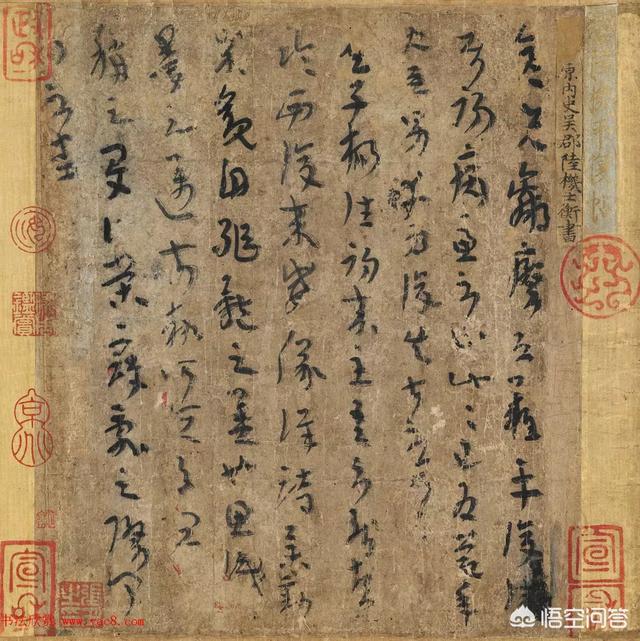 原内史吴郡陸機士衡書
彥先羸瘵恐難平復往屬
初病慮不止此此已為慶承
使唯男幸為復失前憂耳
吳子楊往初來主吾不能盡
臨西復來威儀詳跱舉動
成觀自軀體之美也思識
量之邁前勢所恆有宜
稱之夏伯榮寇亂之際聞
問不悉
政和
宣和
书法欣赏 www.yac8.com
悟空问答